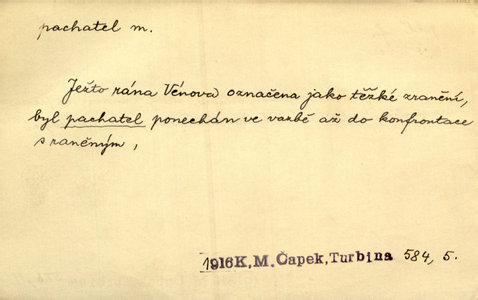 pachatel m.
Ježto rána Vénova označena jako těžké zranění,
byl pachatel ponechán ve vazbě až do konfrontace
s raněným,
1916K,M.Čapek,Turbina 584, 5.